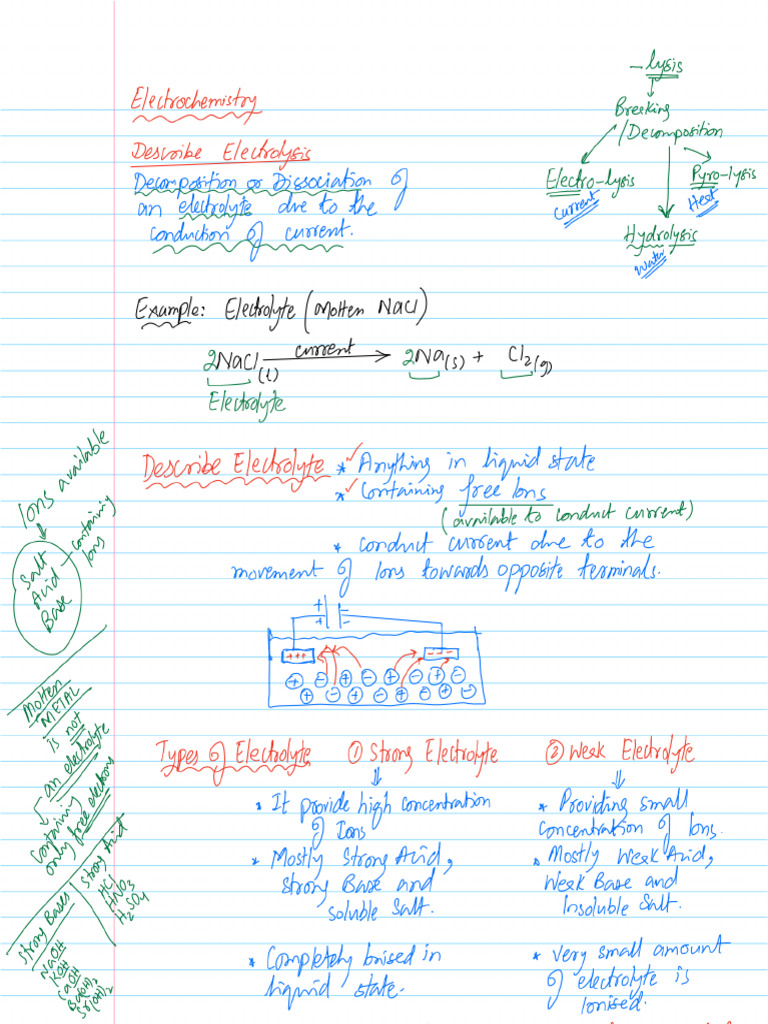 Electrochemistry
Describe Electrolysis
Decomposition or Dissociation of
an electrolyte due to the
conduction of current.
-lysis
Breaking
/Decomposition
Electro-lysis
Current
Pyro-lysis
Heat
Hydrolysis
Water
Example: Electrolyte (Molten NaCl)
2NaCl(l) current → 2Na(s) + Cl2(g)
Electrolyte
Describe Electrolyte * Anything in liquid state
* Containing free Ions
(available to conduct current)
* conduct current due to the
movement of Ions towards opposite terminals.
Ions available
Salt
Acid
Base
containing
Ions
+ -
+ -
+++
---
+ - + - + - + -
- + - + - + -
Molten
METAL
is not
an electrolyte
containing
only free electrons
Types of Electrolyte ① Strong Electrolyte ② Weak Electrolyte
* It provide high concentration
of Ions
* Mostly Strong Acid,
strong Base and
soluble Salt.
* Completely Ionised in
liquid state.
* Providing small
concentration of Ions.
* Mostly Weak Acid,
Weak Base and
Insoluble Salt.
* very small amount
of electrolyte is
Ionised.
Strong Acid
HCl
HNO3
H2SO4
Strong Bases
NaOH
KOH
Ba(OH)2
Sr(OH)2